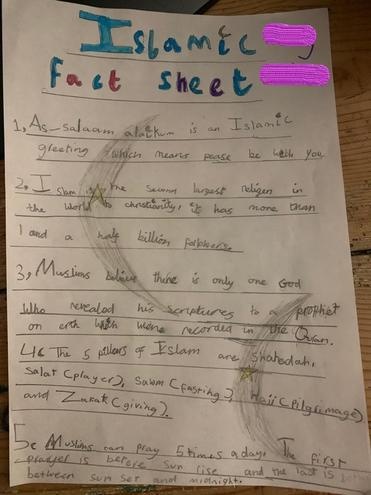 Islamic
Fact Sheet
1, As-salaam alaikum is an Islamic
greeting which means pease be with you
2. Islam is the second largest religen in
the world to christianity, it has more than
1 and a half billion followers
3, Muslims believe there is only one God
Who revealed his scriptures to a prophet
on erth which were recorded in the Quran.
4. The 5 pillers of Islam are Shahadah,
Salat (player), Sawm (fasting), Hajj (Pilgrimage)
and Zakat (giving).
5. Muslims can pray 5 times a day. The first
prayer is before sun rise and the last is
between sun set and midnight.